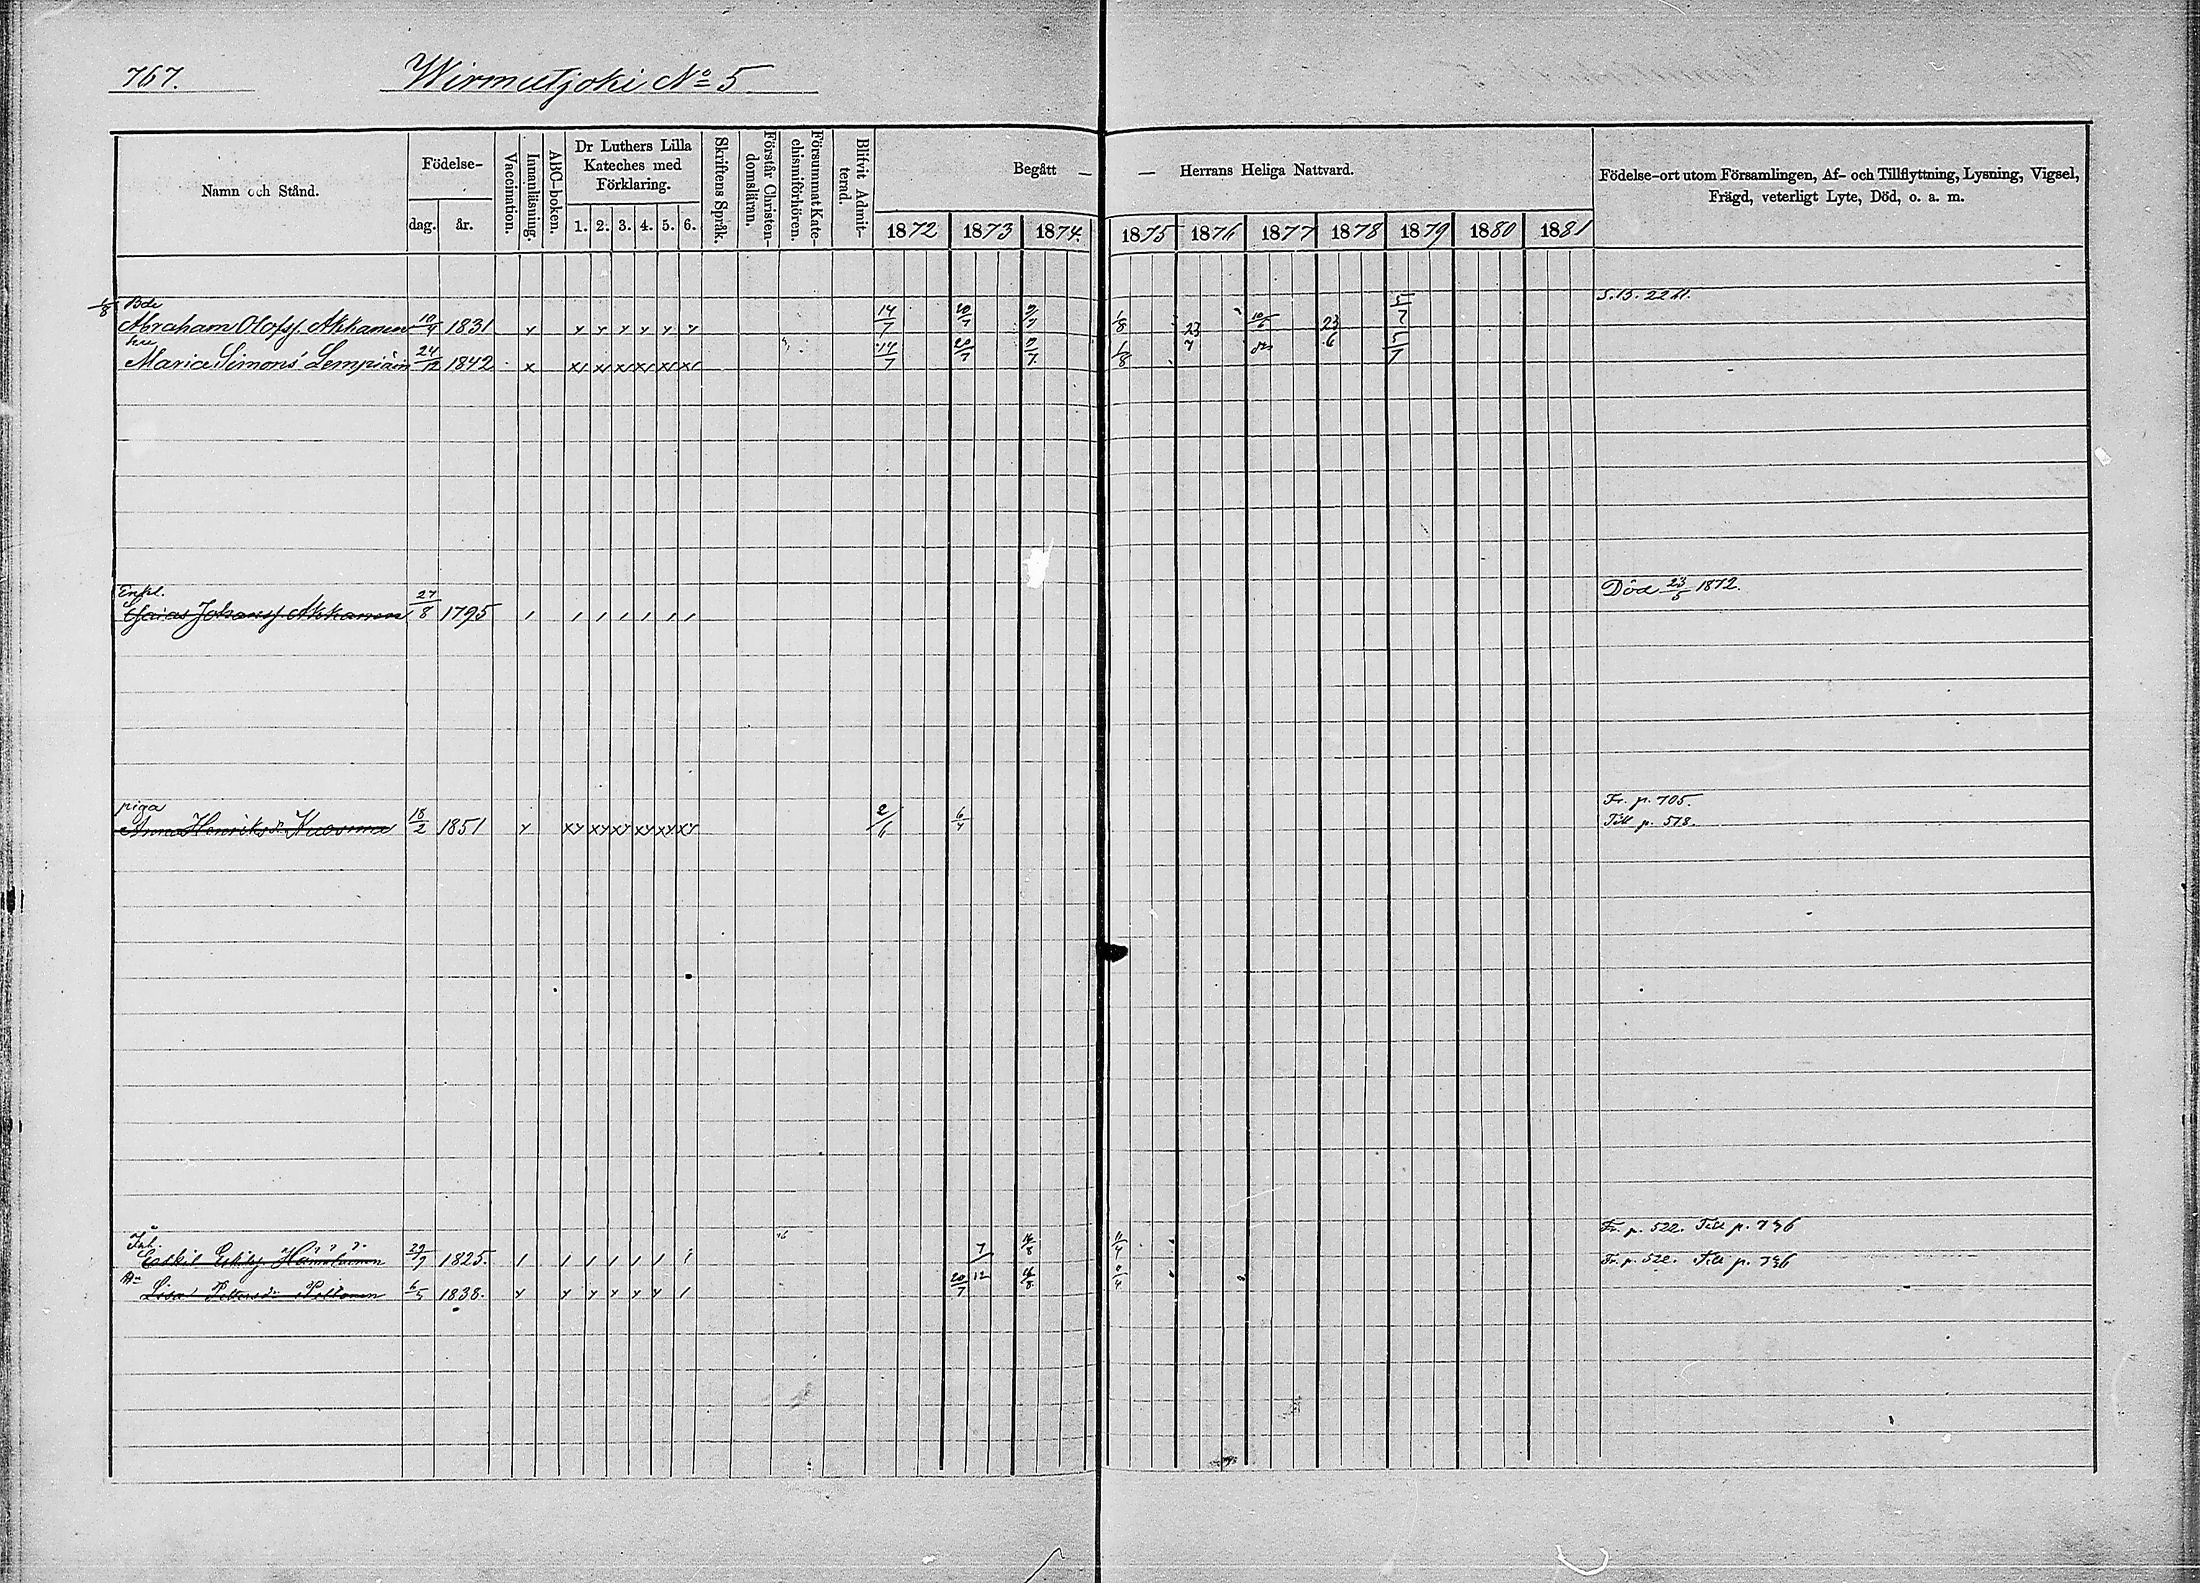 767. Wirmutjoki No 5
Namn och Stånd.
Födelse-
dag. år.
Vaccination.
Innanläsning.
ABC-boken.
Dr Luthers Lilla Kateches med Förklaring.
1. 2. 3. 4. 5. 6.
Skriftens Språk.
Förstår Christendomsläran.
Försummat Katechismiförhören.
Blifvit Admitterad.
Begått — — Herrans Heliga Nattvard.
1872 1873 1874. 1875 1876 1877 1878 1879 1880 1881
Födelse-ort utom Församlingen, Af- och Tillflyttning, Lysning, Vigsel,
Frägd, veterligt Lyte, Död, o. a. m.
1/8 Bde
Abraham Olofss. Akkanen 10/9 1831 14/7 20/7 9/7 1/8 23 10/6 23 5/7
hu
Maria Simons Lempiäin 24/12 1842 14/7 20/7 9/7 1/8 7 6 5/7
Enkl.
Esaias Johanss. Akkanen 27/8 1795 Död 23/5 1872.
piga Fr. p. 705.
Anna Henriksdr Kuosma 18/2 1851 2/6 6/4 Till p. 578.
Inh.
Eskil Eskilss. Hämäläinen 29/9 1825. 7/12 16/8 11/4 Fr. p. 522. Till p. 736
Lisa Pettersdr Piltonen 6/5 1838. 20/7 16/8 Fr. p. 522. Till p. 736